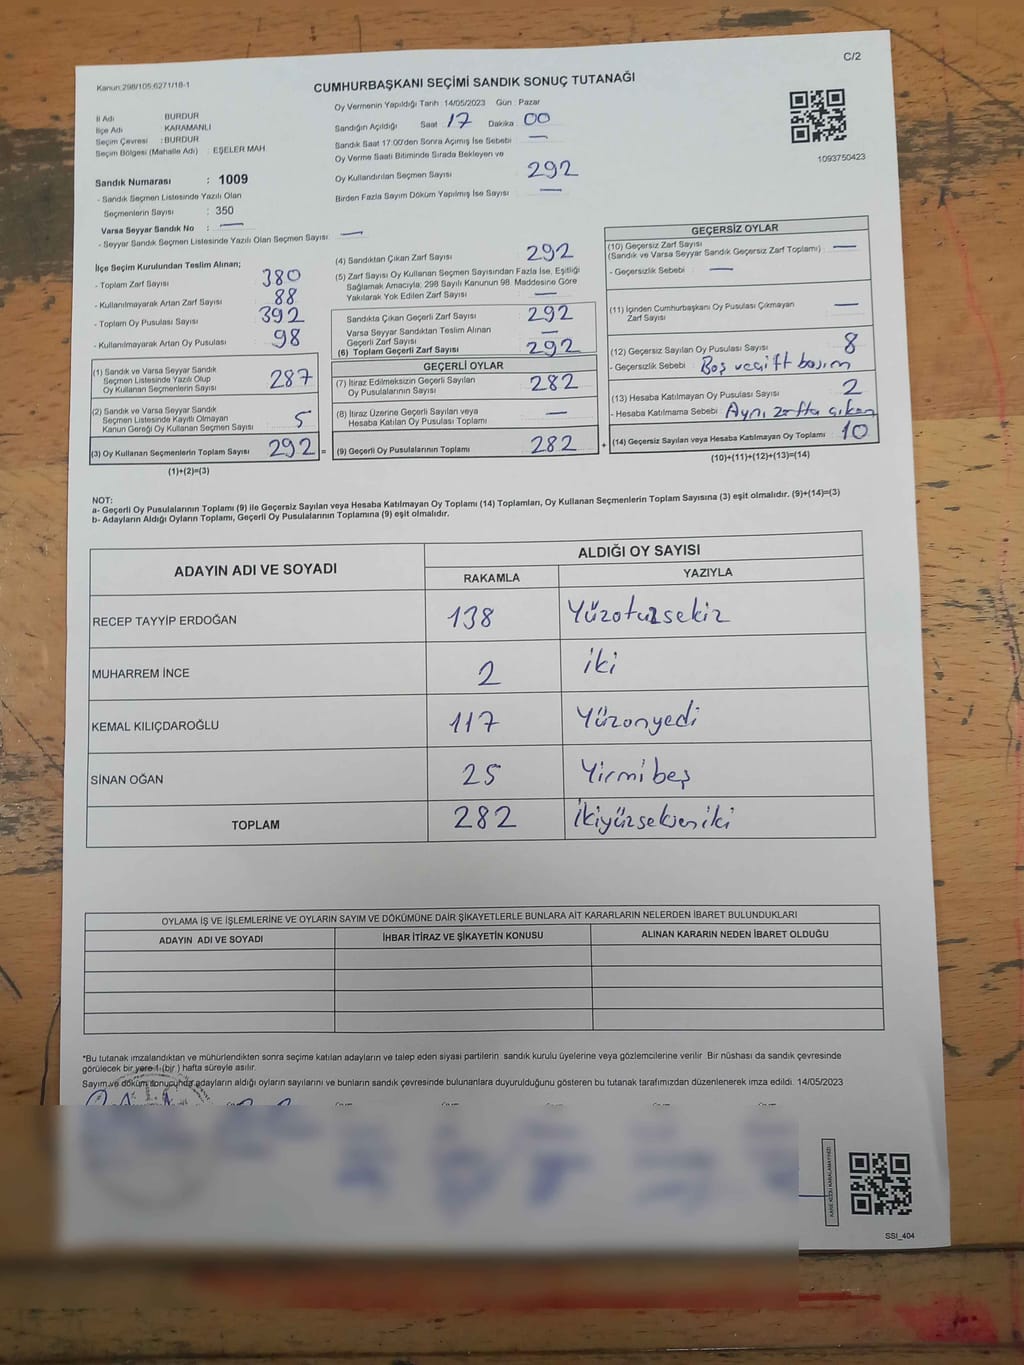 C/2
Kanun:298/105;6271/18-1
CUMHURBAŞKANI SEÇİMİ SANDIK SONUÇ TUTANAĞI
İl Adı BURDUR
İlçe Adı KARAMANLI
Seçim Çevresi : BURDUR
Seçim Bölgesi (Mahalle Adı) : EŞELER MAH
Sandık Numarası : 1009
- Sandık Seçmen Listesinde Yazılı Olan
Seçmenlerin Sayısı : 350
Varsa Seyyar Sandık No : —
- Seyyar Sandık Seçmen Listesinde Yazılı Olan Seçmen Sayısı : —
Oy Vermenin Yapıldığı Tarih : 14/05/2023 Gün : Pazar
Sandığın Açıldığı Saat : 17 Dakika : 00
Sandık Saat 17.00'den Sonra Açılmış İse Sebebi : —
Oy Verme Saati Bitiminde Sırada Bekleyen ve
Oy Kullandırılan Seçmen Sayısı : 292
Birden Fazla Sayım Döküm Yapılmış İse Sayısı : —
1093750423
İlçe Seçim Kurulundan Teslim Alınan;
- Toplam Zarf Sayısı : 380
- Kullanılmayarak Artan Zarf Sayısı : 88
- Toplam Oy Pusulası Sayısı : 392
- Kullanılmayarak Artan Oy Pusulası : 98
(1) Sandık ve Varsa Seyyar Sandık
Seçmen Listesinde Yazılı Olup
Oy Kullanan Seçmenlerin Sayısı : 287
(2) Sandık ve Varsa Seyyar Sandık
Seçmen Listesinde Kayıtlı Olmayan
Kanun Gereği Oy Kullanan Seçmen Sayısı : 5
(3) Oy Kullanan Seçmenlerin Toplam Sayısı : 292 =
(1)+(2)=(3)
(4) Sandıktan Çıkan Zarf Sayısı : 292
(5) Zarf Sayısı Oy Kullanan Seçmen Sayısından Fazla İse, Eşitliği
Sağlamak Amacıyla; 298 Sayılı Kanunun 98. Maddesine Göre
Yakılarak Yok Edilen Zarf Sayısı : —
Sandıkta Çıkan Geçerli Zarf Sayısı : 292
Varsa Seyyar Sandıktan Teslim Alınan
Geçerli Zarf Sayısı : —
(6) Toplam Geçerli Zarf Sayısı : 292
GEÇERLİ OYLAR
(7) İtiraz Edilmeksizin Geçerli Sayılan
Oy Pusulalarının Sayısı : 282
(8) İtiraz Üzerine Geçerli Sayılan veya
Hesaba Katılan Oy Pusulası Toplamı : —
(9) Geçerli Oy Pusulalarının Toplamı : 282 +
GEÇERSİZ OYLAR
(10) Geçersiz Zarf Sayısı
(Sandık ve Varsa Seyyar Sandık Geçersiz Zarf Toplamı) : —
- Geçersizlik Sebebi : —
(11) İçinden Cumhurbaşkanı Oy Pusulası Çıkmayan
Zarf Sayısı : —
(12) Geçersiz Sayılan Oy Pusulası Sayısı : 8
- Geçersizlik Sebebi : Boş ve çift basım
(13) Hesaba Katılmayan Oy Pusulası Sayısı : 2
- Hesaba Katılmama Sebebi : Aynı zarfta çıkan
(14) Geçersiz Sayılan veya Hesaba Katılmayan Oy Toplamı : 10
(10)+(11)+(12)+(13)=(14)
NOT:
a- Geçerli Oy Pusulalarının Toplamı (9) ile Geçersiz Sayılan veya Hesaba Katılmayan Oy Toplamı (14) Toplamları, Oy Kullanan Seçmenlerin Toplam Sayısına (3) eşit olmalıdır. (9)+(14)=(3)
b- Adayların Aldığı Oyların Toplamı, Geçerli Oy Pusulalarının Toplamına (9) eşit olmalıdır.
ADAYIN ADI VE SOYADI ALDIĞI OY SAYISI
RAKAMLA YAZIYLA
RECEP TAYYİP ERDOĞAN 138 Yüzotuzsekiz
MUHARREM İNCE 2 iki
KEMAL KILIÇDAROĞLU 117 Yüzonyedi
SİNAN OĞAN 25 Yirmibeş
TOPLAM 282 ikiyüzsekseniki
OYLAMA İŞ VE İŞLEMLERİNE VE OYLARIN SAYIM VE DÖKÜMÜNE DAİR ŞİKAYETLERLE BUNLARA AİT KARARLARIN NELERDEN İBARET BULUNDUKLARI
ADAYIN ADI VE SOYADI İHBAR İTİRAZ VE ŞİKAYETİN KONUSU ALINAN KARARIN NEDEN İBARET OLDUĞU
*Bu tutanak imzalandıktan ve mühürlendikten sonra seçime katılan adayların ve talep eden siyasi partilerin sandık kurulu üyelerine veya gözlemcilerine verilir. Bir nüshası da sandık çevresinde
görülecek bir yere 1 (bir ) hafta süreyle asılır.
Sayım ve döküm sonucunda adayların aldığı oyların sayılarını ve bunların sandık çevresinde bulunanlara duyurulduğunu gösteren bu tutanak tarafımızdan düzenlenerek imza edildi. 14/05/2023
KARE KODU KARALAMAYINIZ!
SSI_404